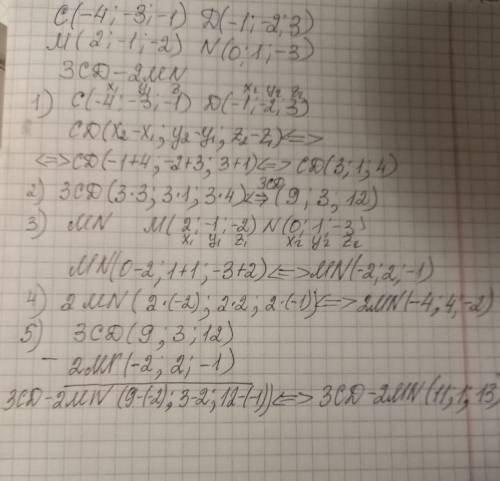 C(-4; -3; -1) D(-1; -2; 3)
M(2; -1; -2) N(0; 1; -3)
3CD - 2MN
x₁ y₁ z₁ x₂ y₂ z₂
1) C(-4; -3; -1) D(-1; -2; 3)
CD(x₂-x₁; y₂-y₁; z₂-z₁) <=>
<=> CD(-1+4; -2+3; 3+1) <=> CD(3; 1; 4)
2) 3CD(3·3; 3·1; 3·4) <=> 3CD (9; 3; 12)
3) MN M(2; -1; -2) N(0; 1; -3)
x₁ y₁ z₁ x₂ y₂ z₂
MN(0-2; 1+1; -3+2) <=> MN(-2; 2; -1)
4) 2MN(2·(-2); 2·2; 2·(-1)) <=> 2MN(-4; 4; -2)
5) 3CD(9; 3; 12)
- 2MN(-2; 2; -1)
3CD-2MN (9-(-2); 3-2; 12-(-1)) <=> 3CD-2MN(11; 1; 13)